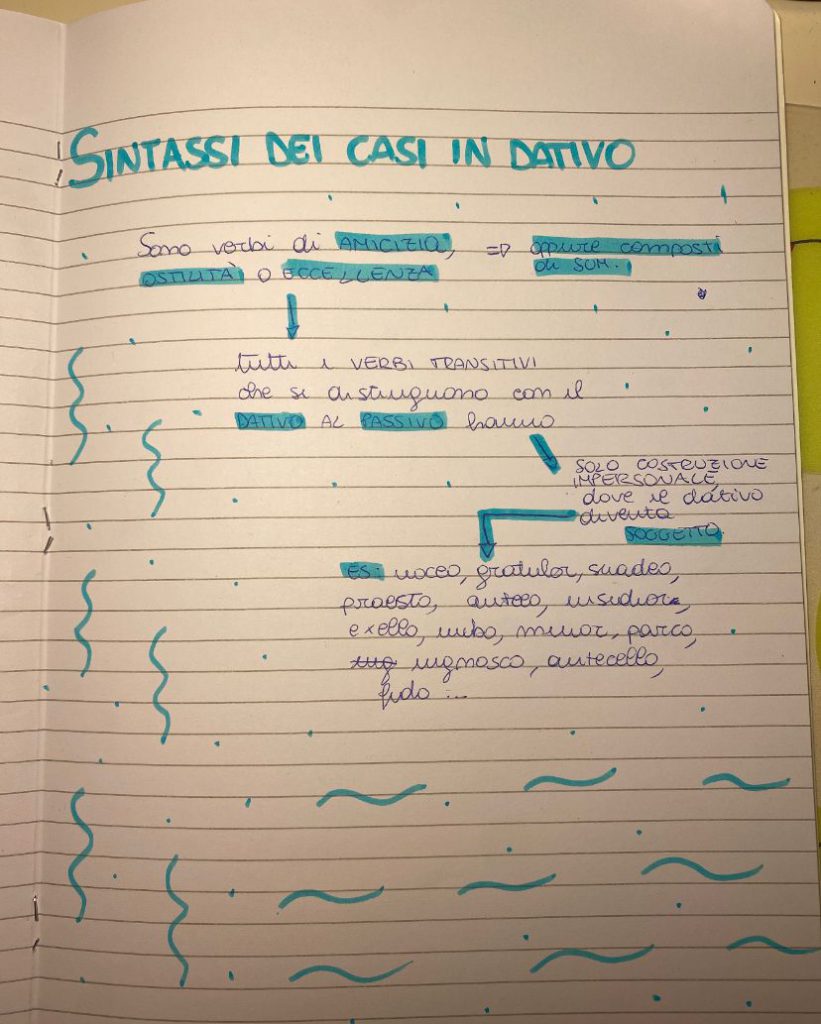 SINTASSI DEI CASI IN DATIVO
Sono verbi di AMICIZIA, ⇒ oppure composti
OSTILITÀ O ECCELLENZA di SUM.
tutti i VERBI TRANSITIVI
che si distinguono con il
DATIVO AL PASSIVO hanno
SOLO COSTRUZIONE
IMPERSONALE,
dove il dativo
diventa
SOGGETTO
ES: noceo, gratulor, suadeo,
praesto, anteeo, insidior,
exello, nubo, minor, parco,
ingnosco, antecello,
fido ...